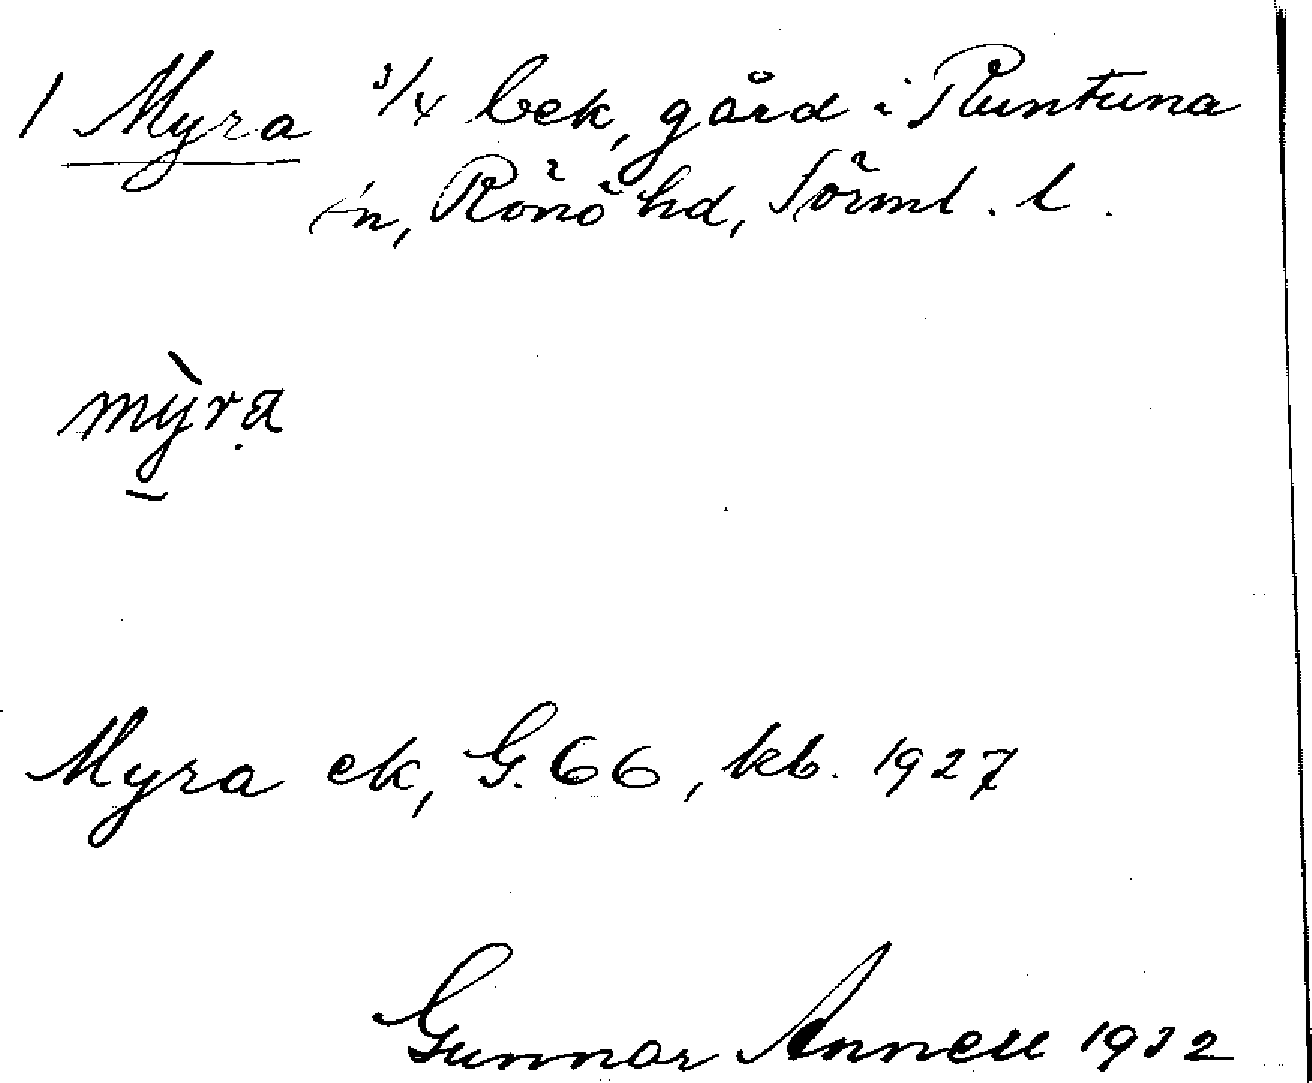 1 Myra 3/4 bek, gård i Runtuna
sn, Rönö hd, Sörml. l.
mỳra
Myra ek, G. 66, kb. 1927
Gunnar Annell 1932